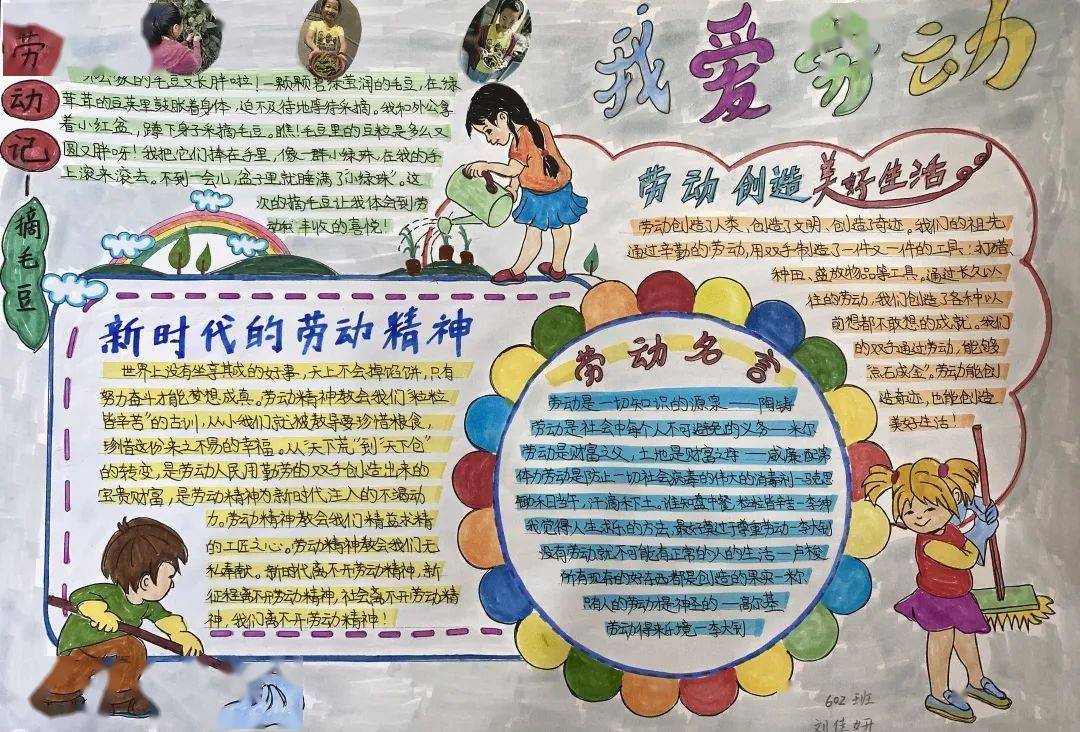 我爱劳动
劳动记
摘毛豆
的毛豆又长胖啦！一颗颗碧绿莹润的毛豆，在绿
茸茸的豆荚里鼓胀着身体，迫不及待地等待采摘。我和外公拿
着小红盆，蹲下身子采摘毛豆。瞧！毛豆里的豆粒是多么又
圆又胖呀！我把它们捧在手里，像一群小绿珠，在我的手
上滚来滚去。不到一会儿，盆子里就睡满了“小绿珠”。这
次的摘毛豆让我体会到劳
动和丰收的喜悦！
新时代的劳动精神
世界上没有坐享其成的好事，天上不会掉馅饼，只有
努力奋斗才能梦想成真。劳动精神教会我们“粒粒
皆辛苦”的古训，从小我们就被教导要珍惜粮食，
珍惜这份来之不易的幸福。从“天下荒”到“天下仓”
的转变，是劳动人民用勤劳的双手创造出来的
宝贵财富，是劳动精神为新时代注入的不竭动
力。劳动精神教会我们精益求精
的工匠之心。劳动精神教会我们无
私奉献。新时代离不开劳动精神，新
征程离不开劳动精神，社会离不开劳动精
神，我们离不开劳动精神！
劳动名言
劳动是一切知识的源泉——陶铸
劳动是社会中每个人不可避免的义务—米尔
劳动是财富之父，土地是财富之母——威廉·配第
体力劳动是防止一切社会病毒的伟大的消毒剂—马克思
锄禾日当午，汗滴禾下土。谁知盘中餐，粒粒皆辛苦—李绅
我觉得人生求乐的方法，最好莫过于尊重劳动—李大钊
没有劳动就不可能有正常的人的生活—卢梭
所有现存的好东西都是创造的果实—米尔
只有人的劳动才是神圣的—高尔基
劳动得来乐境—李大钊
劳动创造美好生活
劳动创造了人类、创造了文明、创造了奇迹。我们的祖先
通过辛勤的劳动，用双手制造了一件又一件的工具：打猎、
种田、盛放物品等工具。通过长久以
往的劳动，我们创造了各种以
前想都不敢想的成就。我们
的双手通过劳动，能够
“点石成金”。劳动能创
造奇迹，也能创造
美好生活！
602班
刘佳妍